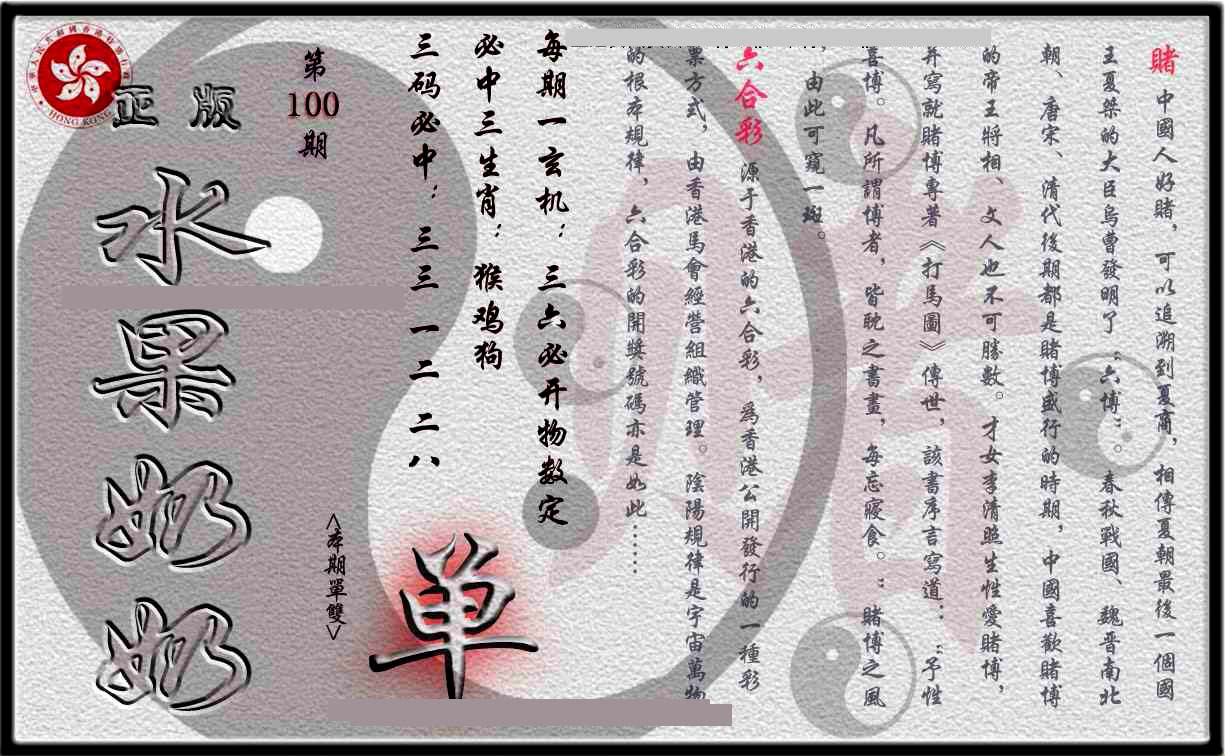 賭 中國人好賭，可以追溯到夏商，相傳夏朝最後一個國
王夏桀的大臣烏曹發明了“六博”。春秋戰國、魏晋南北
朝、唐宋、清代後期都是賭博盛行的時期，中國喜歡賭博
的帝王將相、文人也不可勝數。才女李清照生性愛賭博，
并寫就賭博專著《打馬圖》傳世，該書序言寫道：“予性
喜博。凡所謂博者，皆耽之書畫，每忘寢食。：賭博之風
，由此可窺一斑。
六合彩 源于香港的六合彩，為香港公開發行的一種彩
票方式，由香港馬會經營組織管理。陰陽規律是宇宙萬物
的根本規律，六合彩的開獎號碼亦是如此……
每期一玄机：三六必开物数定
必中三生肖：猴鸡狗
三码必中：三三一二二八
第
100
期
<本期單雙>
单
正版
水果奶奶
HONG KONG